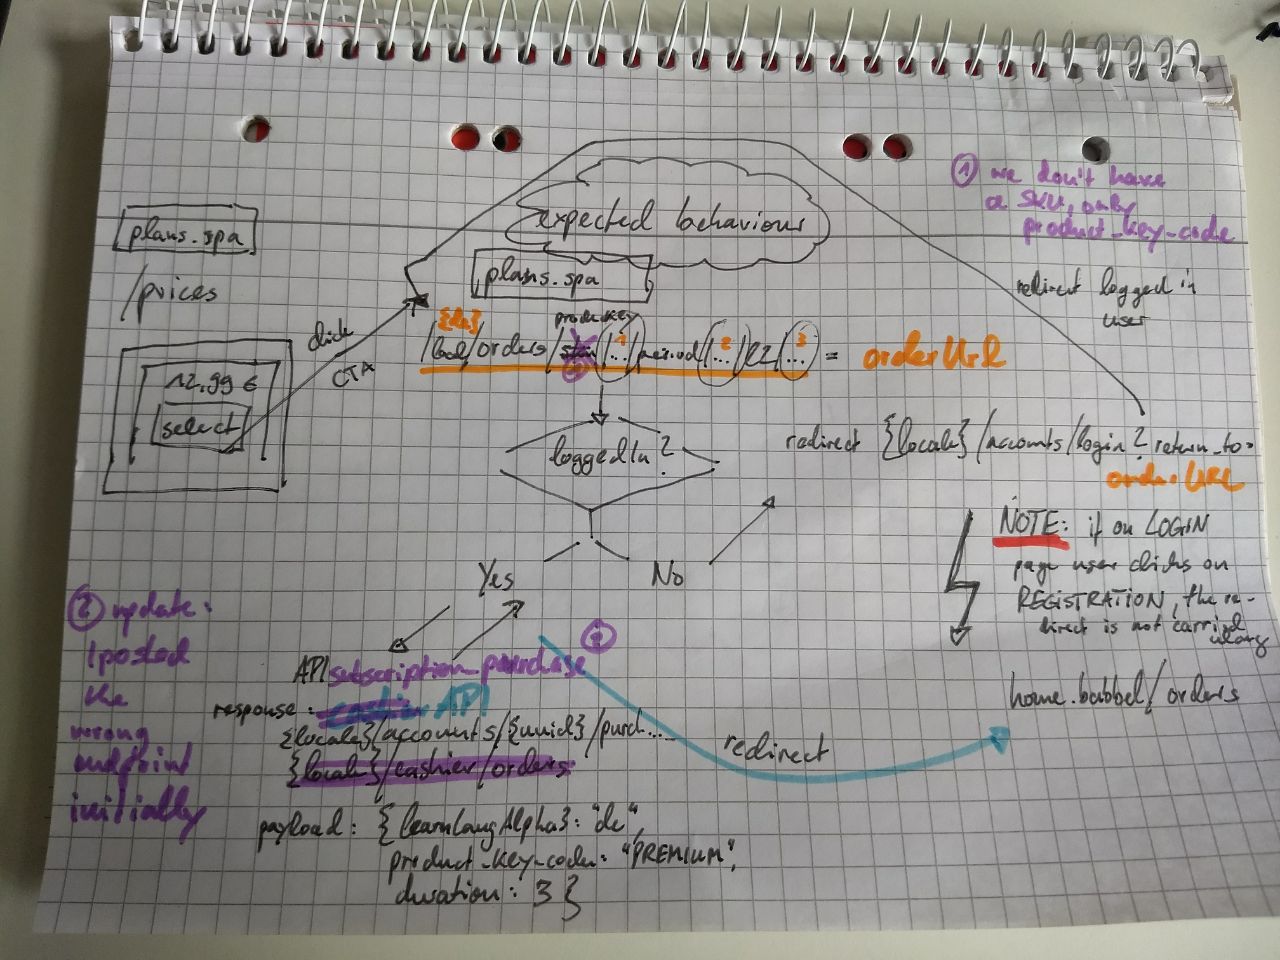 ① we don't have
a SKU, only
product-key-code
expected behaviour
plans.spa
plans.spa
/prices
redirect logged in
user
click
CTA
12,99 €
select
/orders/
1
/period/
2
3
= orderUrl
loggedIn?
redirect {locale}/accounts/login?return_to=
order URL
NOTE: if on LOGIN
page user clicks on
REGISTRATION, the re-
direct is not carried
along
Yes
No
② update:
I posted
the
wrong
endpoint
initially
API subscription purchase ②
response: cashier API
{locale}/accounts/{uuid}/purch...
{locale}/cashier/orders
redirect
home.babbel/orders
payload: { learnLangAlpha3: "de",
product-key-code: "PREMIUM",
duration: 3 }